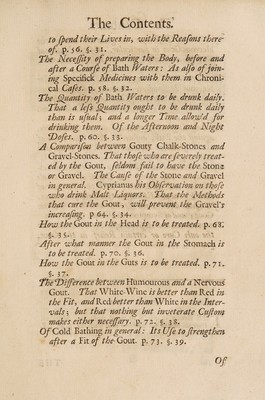 The Contents.
to spend their Lives in, with the Reasons there-
of. p. 56. §. 31.
The Necessity of preparing the Body, before and
after a Course of Bath Waters: As also of join-
ing Specifick Medicines with them in Chroni-
cal Cases. p. 58. §. 32.
The Quantity of Bath Waters to be drunk daily.
That a less Quantity ought to be drunk daily
than is usual; and a longer Time allow'd for
drinking them. Of the Afternoon and Night
Doses. p. 60. §. 33.
A Comparison between Gouty Chalk-Stones and
Gravel-Stones. That those who are severely treat-
ed by the Gout, seldom fail to have the Stone
or Gravel. The Cause of the Stone and Gravel
in general. Cyprianus his Observation on those
who drink Malt Liquors. That the Methods
that cure the Gout, will prevent the Gravel's
increasing. p 64. §. 34.
How the Gout in the Head is to be treated. p. 68.
§. 35.
After what manner the Gout in the Stomach is
to be treated. p. 70. §. 36.
How the Gout in the Guts is to be treated. p. 71.
§. 37.
The Difference between Humourous and a Nervous
Gout. That White-Wine is better than Red in
the Fit, and Red better than White in the Inter-
vals; but that nothing but inveterate Custom
makes either necessary. p. 72. §. 38.
Of Cold Bathing in general: Its Use to strengthen
after a Fit of the Gout. p. 73. §. 39.
Of